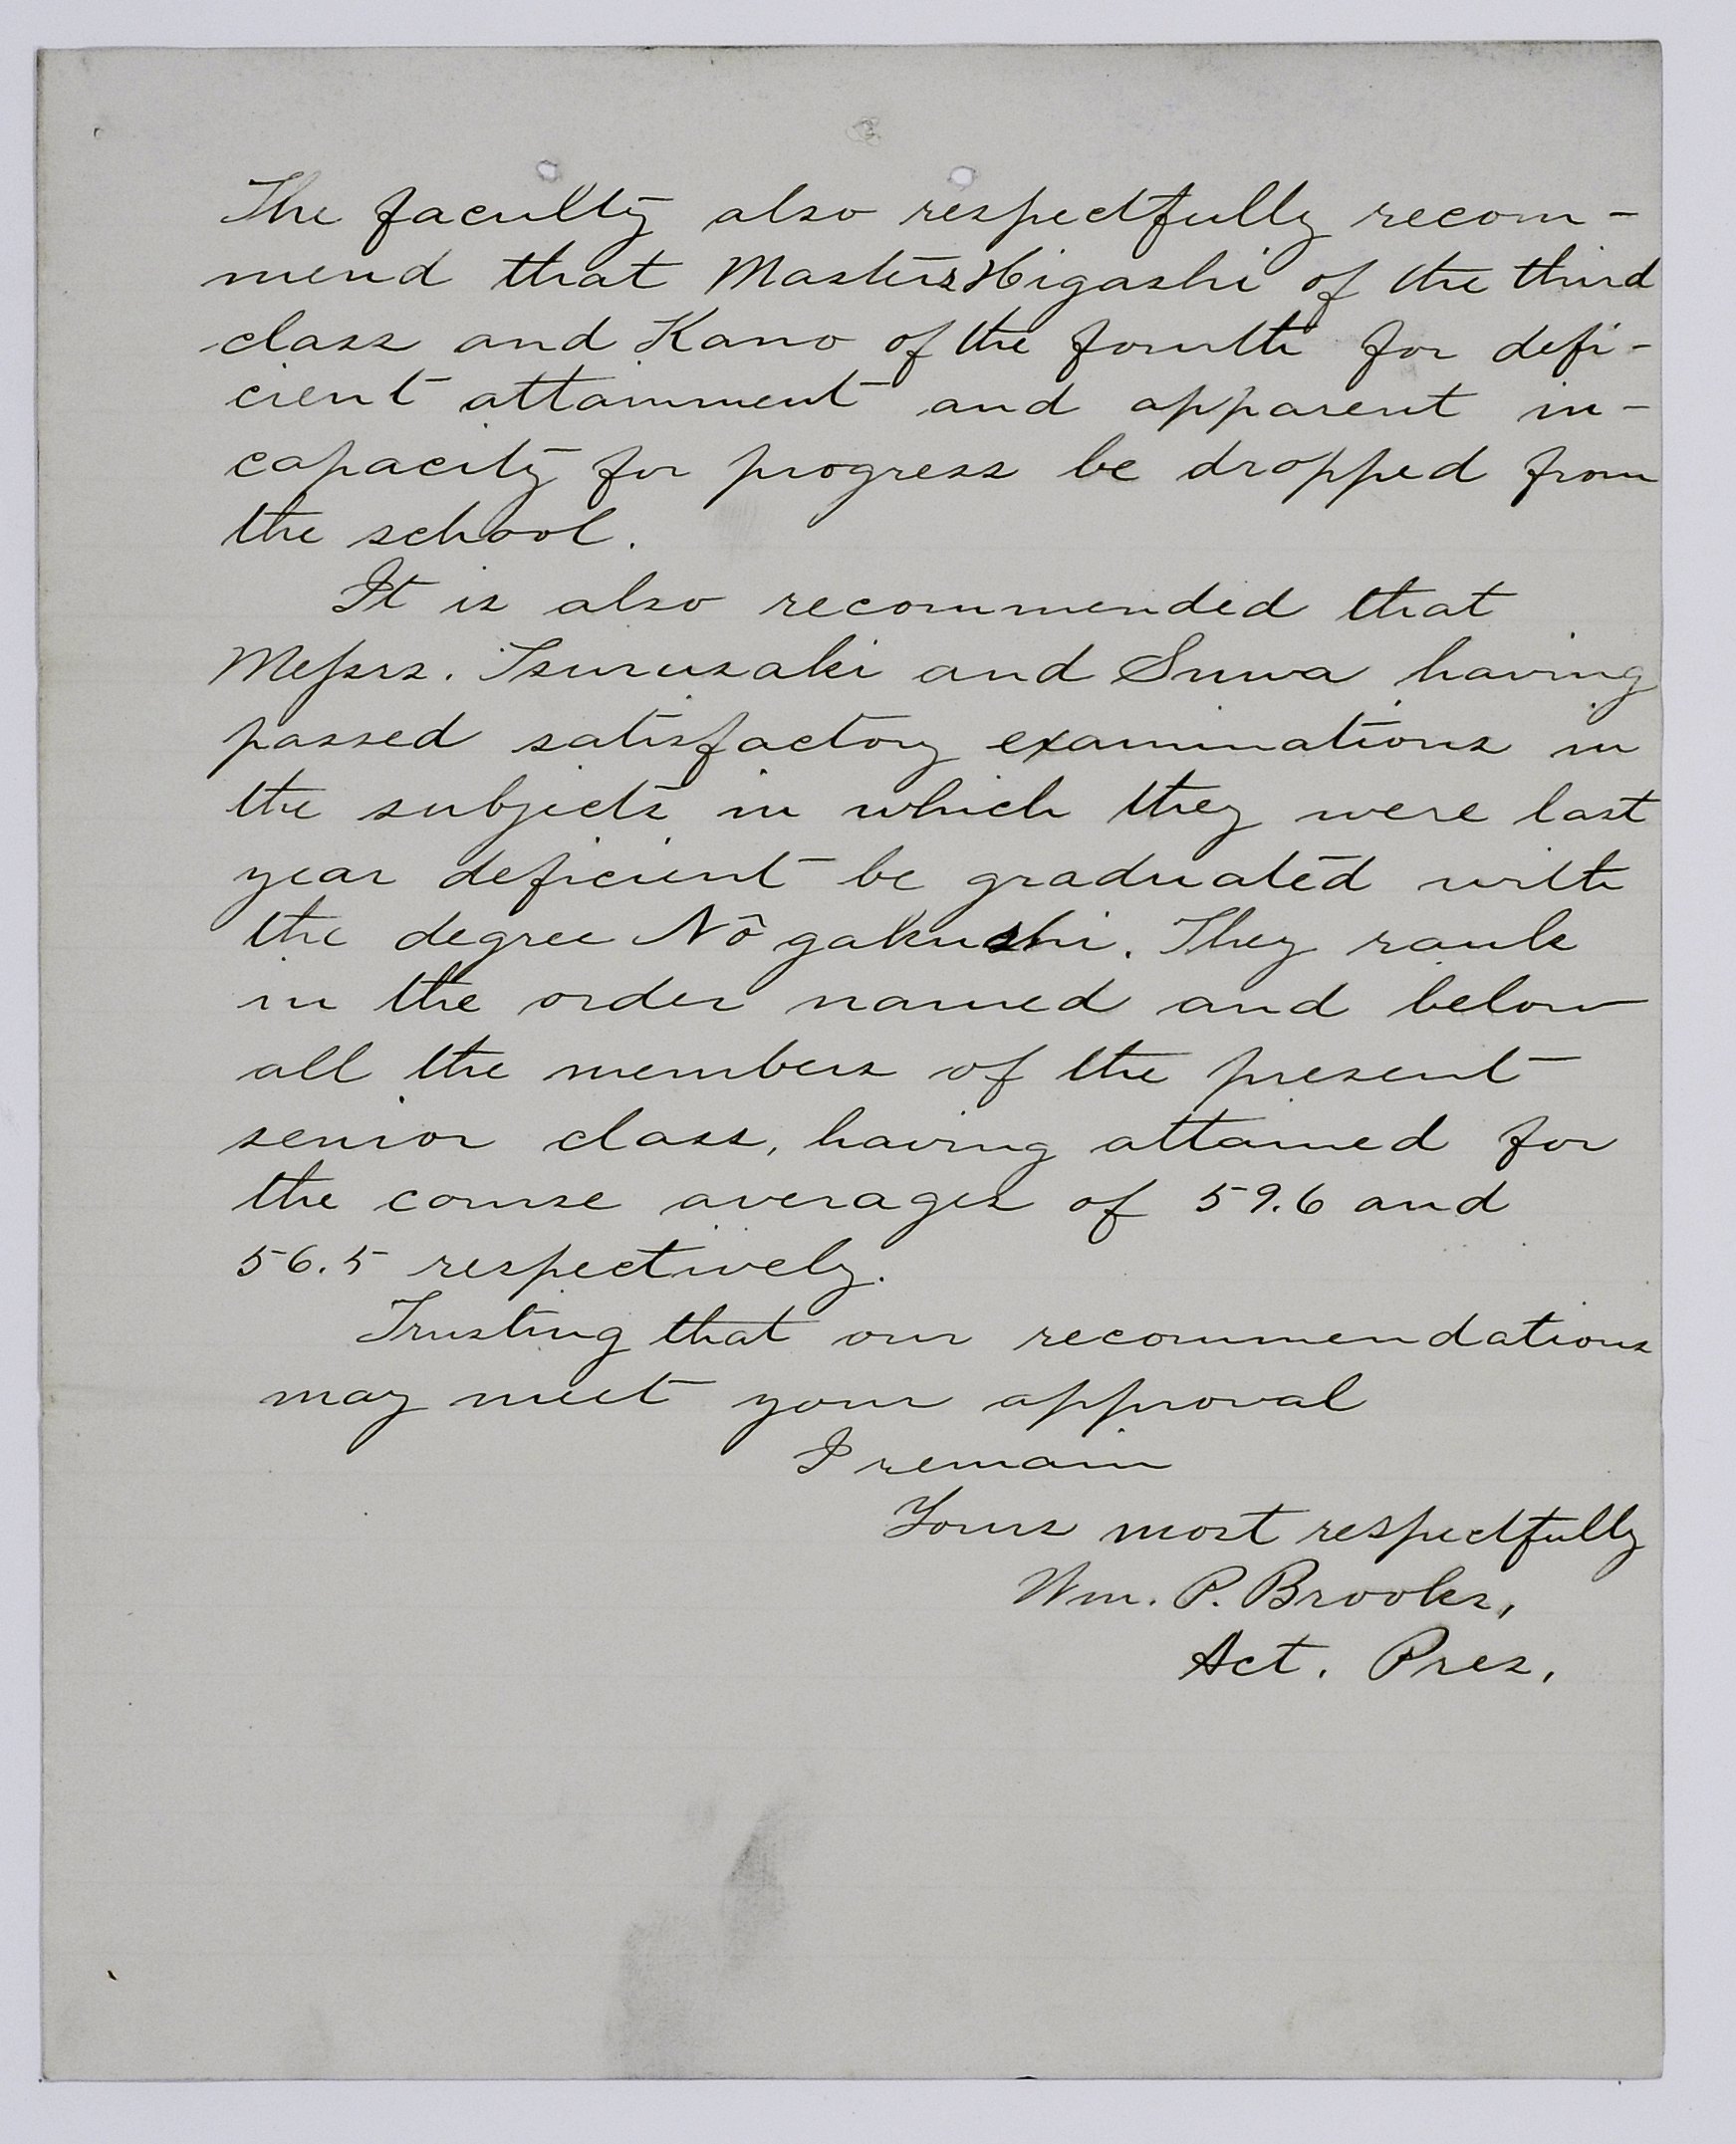 The faculty also respectfully recom-
mend that Masters Higashi of the third
class and Kano of the fourth for defi-
cient attainment and apparent in-
capacity for progress be dropped from
the school.
It is also recommended that
Messrs. Tsurusaki and Suwa having
passed satisfactory examinations in
the subjects in which they were last
year deficient be graduated with
the degree Nôgakushi. They rank
in the order named and below
all the members of the present
senior class, having attained for
the course averages of 59.6 and
56.5 respectively.
Trusting that our recommendations
may meet your approval
I remain
Yours most respectfully
Wm. P. Brooks,
Act. Pres.